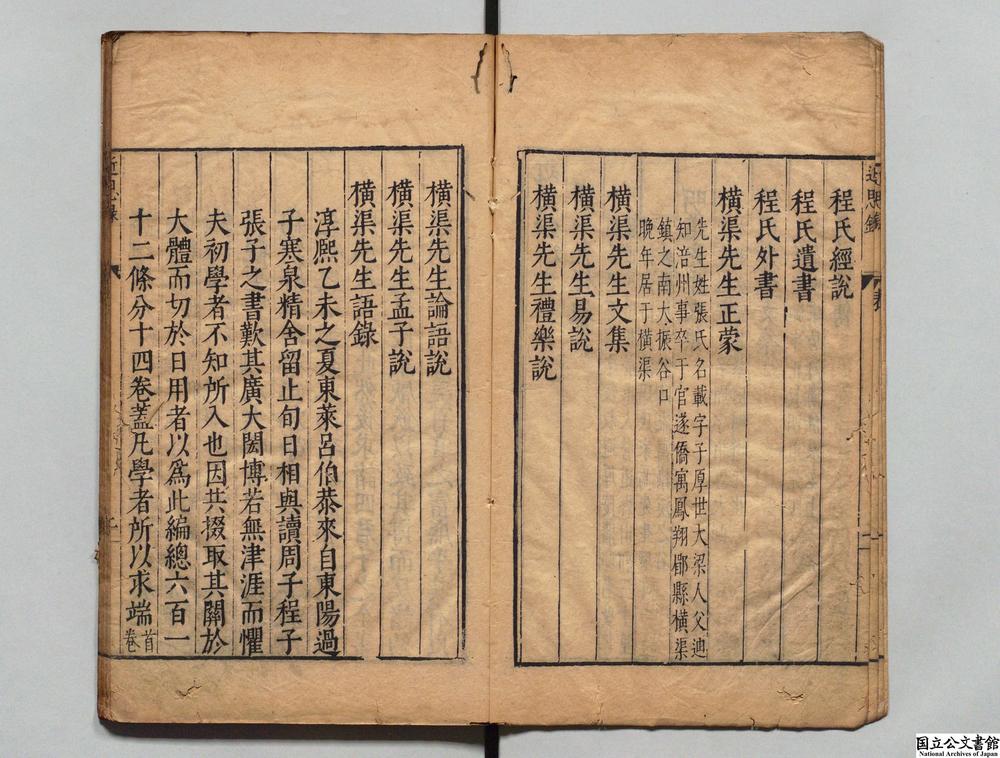 近思録
程氏經說
程氏遺書
程氏外書
橫渠先生正蒙
先生姓張氏名載字子厚世大梁人父迪
知涪州事卒于官遂僑寓鳳翔郿縣橫渠
鎮之南大振谷口
晚年居于橫渠
橫渠先生文集
橫渠先生易說
橫渠先生禮樂說
橫渠先生論語說
橫渠先生孟子說
橫渠先生語錄
淳熈乙未之夏東萊呂伯恭來自東陽過
子寒泉精舍留止旬日相與讀周子程子
張子之書歎其廣大閎博若無津涯而懼
夫初學者不知所入也因共掇取其關於
大體而切於日用者以爲此編總六百一
十二條分十四卷蓋凡學者所以求端
首卷
国立公文書館
National Archives of Japan